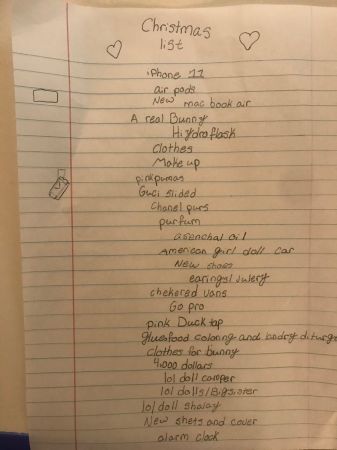 Christmas
list
iPhone 11
air pods
New mac book air
A real Bunny
Hidroflask
Clothes
Make up
pink pumas
Guci slided
Chanel purs
parfum
asenchal oil
American girl doll car
New shoes
earings/ julery
chekered vans
Go pro
pink Duck tap
glue food coloring and londry diturge
clothes for bunny
4,000 dollars
lol doll camper
lol dolls/Bigsinser
lol doll
New shets and cover
alarm clock